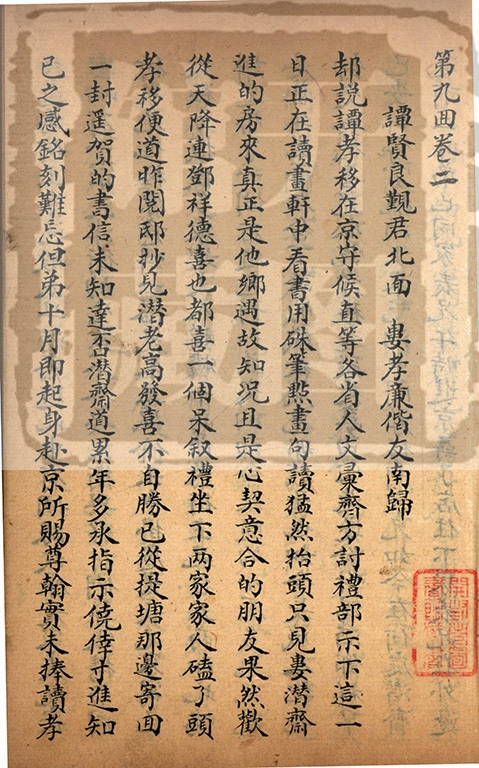 第九回卷二
譚賢良覲君北面　婁孝廉偕友南歸
却説譚孝移在京守候直等各省人文彙齊方討禮部示下這一
日正在讀畫軒中看書用硃筆㸃畫句讀猛然抬頭只見婁潛齋
進的房來真正是他鄉遇故知况且是心契意合的朋友果然歡
從天降連鄧祥德喜也都喜個呆叙禮坐下兩家家人磕了頭
孝移便道昨閱邸抄見潜老高發喜不自勝已從提塘那邊寄囬
一封遥賀的書信未知達否潛齋道累年多承指示僥倖寸進知
已之感銘刻難忘但弟十月即起身赴京所賜尊翰實未捧讀孝
開封